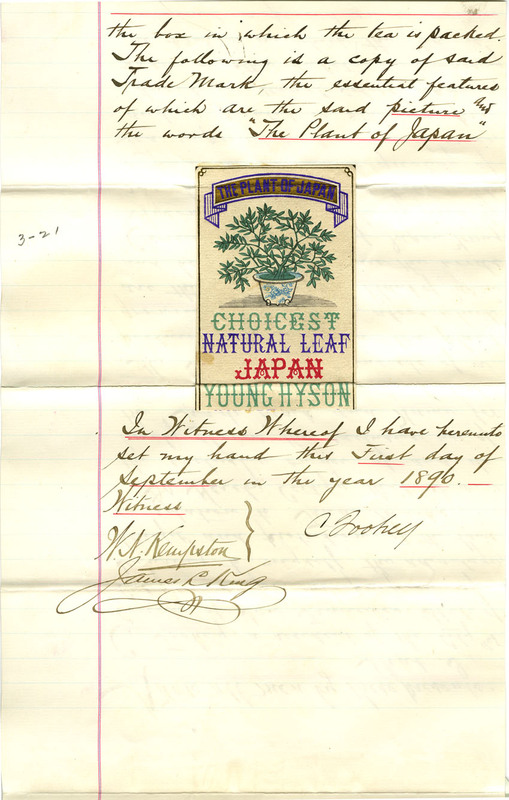 the box in which the tea is packed.
The following is a copy of said
Trade Mark, the essential features
of which are the said picture and
the words "The Plant of Japan"
3-21
THE PLANT OF JAPAN
CHOICEST
NATURAL LEAF
JAPAN
YOUNG HYSON
In Witness Whereof I have hereunto
set my hand this First day of
September in the year 1890.
Witness
W. N. Kempston
James L King